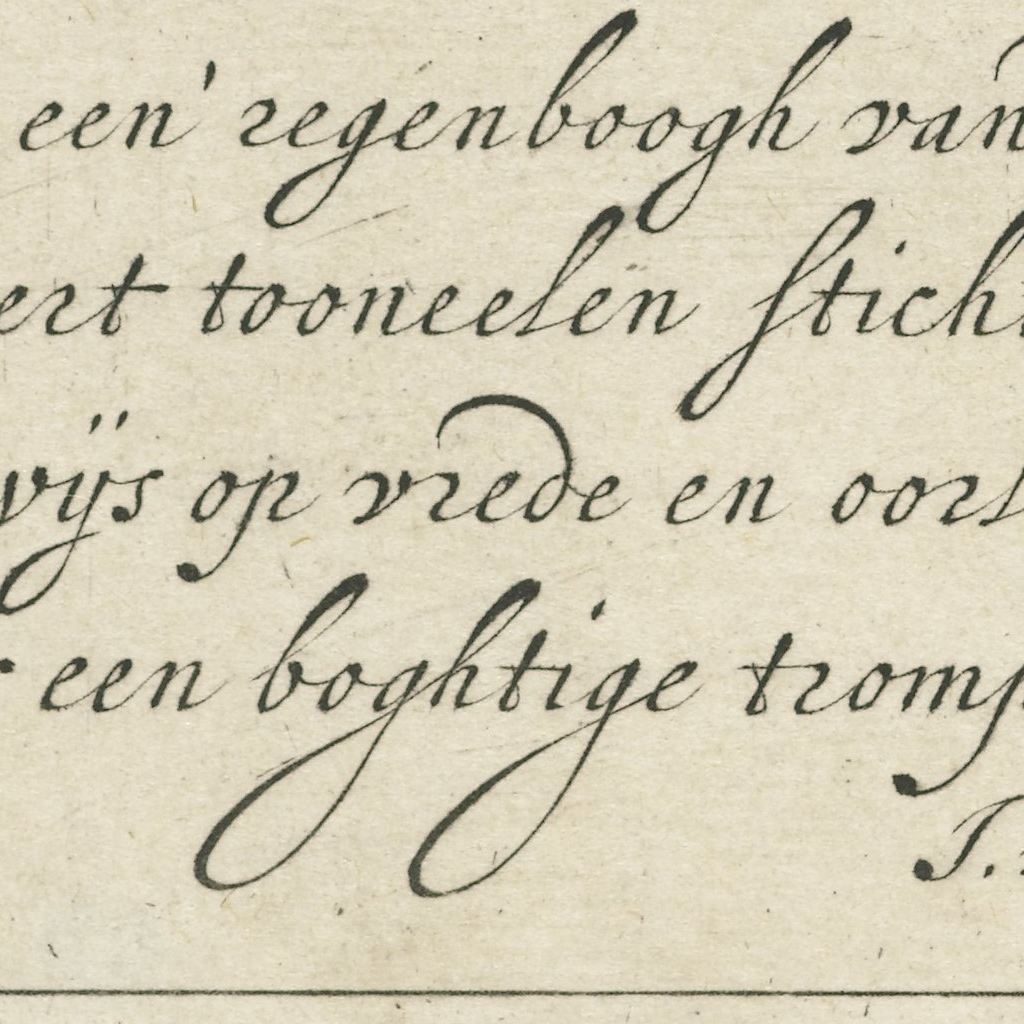 een' regenboogh van
ert tooneelen stich
wijs op vrede en oorl
een boghtige tromp
J.